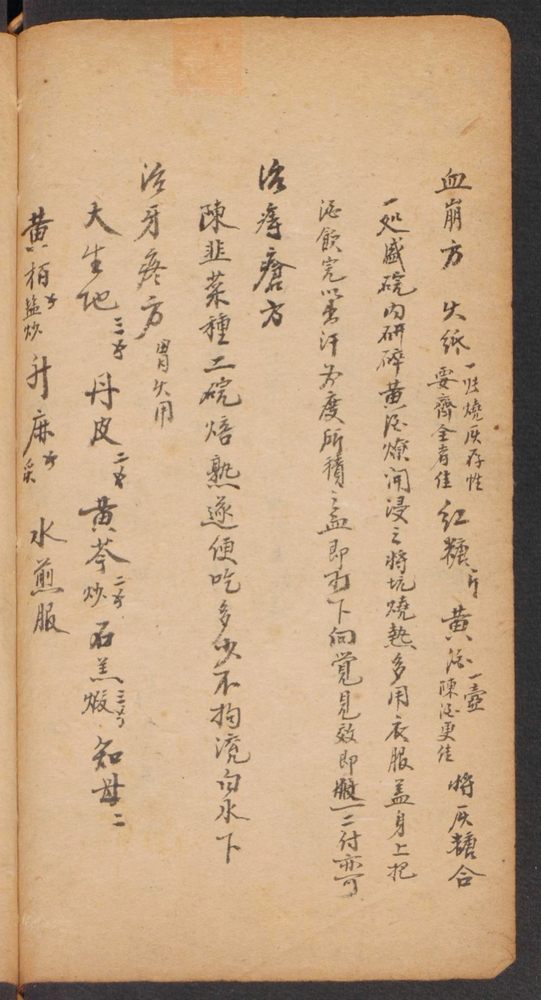 血崩方 火紙一張燒灰存性要齊全者佳 紅糖 黄酒一壺陳酒更佳 將灰糖合
一处盛碗内研碎黄酒燎開浸之將炕燒熱多用衣服盖身上把
酒飲完以出汗为度所積之血即下向覺見效即服一二付亦可
治痔瘡方
陳韭菜種二碗焙熟遂便吃多少不拘流白水下
治牙疼方 胃火用
大生地三 丹皮二 黄芩炒二 石羔煅三 知母二
黄栢盐炒 升麻 水煎服